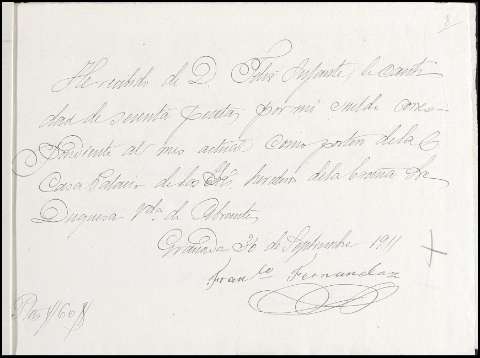 8
He recibido de D. Felix Infante, la canti-
dad de sesenta pesetas, por mi sueldo corres-
pondiente al mes actual como portero de la
Casa Palacio de los Srs, herederos de la Excma Sra
Duquesa Vda. de Abrantes
Granada 30 de Septiembre 1911
Franco Fernandez
Ptas #60#